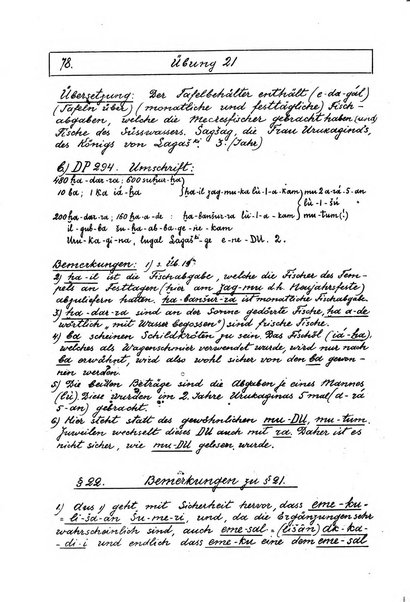 78. Übung 21
Übersetzung: Der Tafelbehälter enthält (e-da-gál)
(Tafeln über) (monatliche und festtägliche) Fisch-
abgaben, welche die Meeresfischer gebracht haben (und)
Fische des Süsswassers. Šagšag, die Frau Urukagina's,
des Königs von Lagaš ki. 3. (Jahr)
b) DP 294. Umschrift:
480 ḫa-dar-ra: 600 suḫa ḫa)
10 ba; 1 Ka iá-ḫa } ḫa-il jag-mu-ka lù-1-a-kam } mu 2 a-rá-5-an
lù-1-šú
200 ḫa-dar-ra; 160 ḫa-a-de : ḫa-banšur-ra lù-1-a-kam } mu-tum (!)
il-gub-ba šu-ḫa-ab-ba-ge-ne-kam
Uru-Ka-gi-na, lugal Lagaš ki-ge e-ne-DU. 2.
Bemerkungen: 1) s. Üb. 18
2) ḫa-il ist die Fischabgabe, welche die Fischer des Tem-
pels an Festtagen (hier am jag-mu d.h. Neujahrsfeste)
abzuliefern hatten. ḫa-banšur-ra ist monatliche Fischabgabe.
3) ḫa-dar-ra sind an der Sonne gedörrte Fische, ḫa a-de
wörtlich „mit Wasser begossen") sind frische Fische.
4) ba scheinen Schildkröten zu sein. Das Fischöl (iá-ḫa),
welches als Wagenschmier verwendet wurde, wird nur nach
ba erwähnt, wird also wohl sicher von den ba gewon-
nen werden.
5) Die beiden Beträge sind die Abgaben je eines Mannes
(lù). Diese wurden im 2. Jahre Urukaginas 5 mal (a-rá
5-an) gebracht.
6) Hier steht statt des gewöhnlichen mu-DU, mu-tum.
Zuweilen wechselt dieses DU auch mit ra. Daher ist es
nicht sicher, wie mu-DU gelesen wurde.
§ 22. Bemerkungen zu § 21.
1) Aus 1) geht mit Sicherheit hervor, dass eme-ku-
= li-ša-an šu-me-ri, und, da die Ergänzungen sehr
wahrscheinlich sind, auch eme-sal = (lišān) ak-ka-
di-i und endlich dass eme-ku eine dem eme-sal